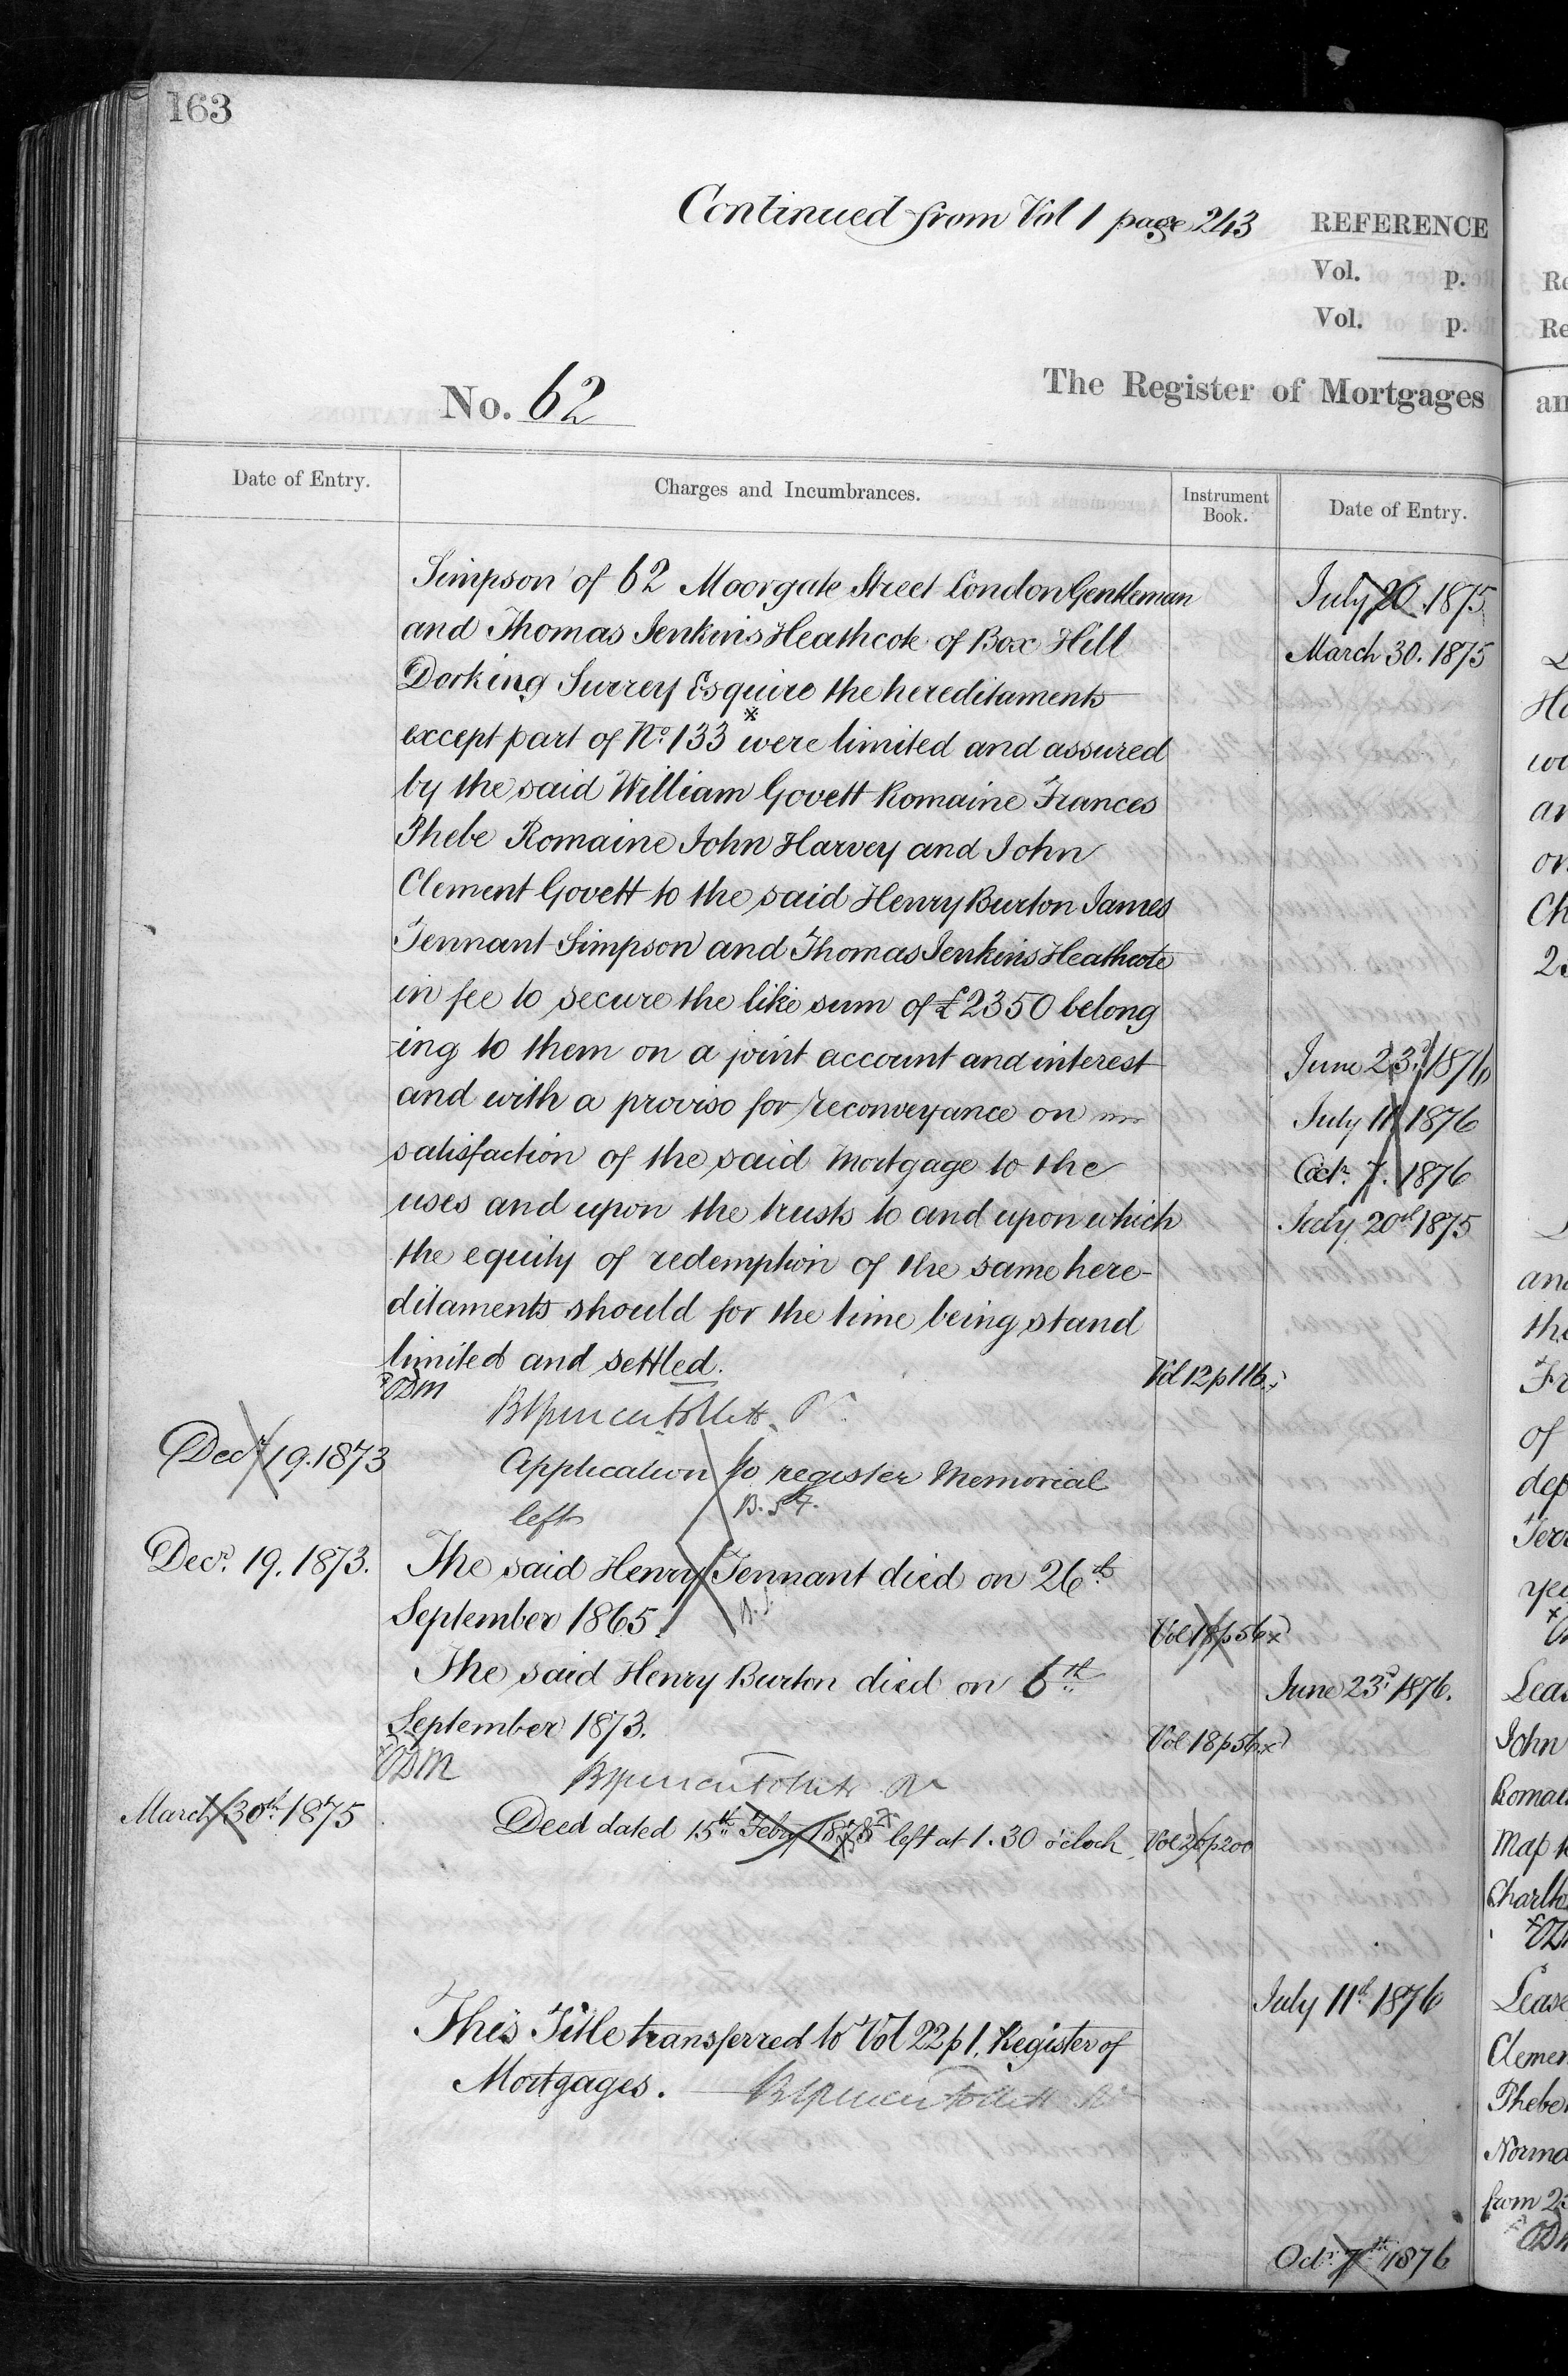 163
Continued from Vol 1 page 243
REFERENCE
Vol. p.
Vol. p.
No. 62
The Register of Mortgages
Date of Entry.
Charges and Incumbrances.
Instrument Book.
Date of Entry.
Simpson of 62 Moorgate Street London Gentleman
July 20. 1875
and Thomas Jenkins Heathcote of Box Hill
March 30. 1875
Dorking Surrey Esquire the hereditaments
except part of No. 133 x were limited and assured
by the said William Govett Romaine Frances
Phebe Romaine John Harvey and John
Clement Govett to the said Henry Burton James
Tennant Simpson and Thomas Jenkins Heathcote
in fee to secure the like sum of £2350 belong
-ing to them on a joint account and interest
June 23d. 1876
and with a proviso for reconveyance on
July 11. 1876
satisfaction of the said Mortgage to the
Octr. 7. 1876
uses and upon the trusts to and upon which
July 20th 1875
the equity of redemption of the same here-
ditaments should for the time being stand
limited and settled.
Vol 12 p 116
Decr. 19. 1873
Application to register Memorial
left
B.S.F.
Decr. 19. 1873.
The said Henry Tennant died on 26th
September 1865.
Vol 18 p 56
The said Henry Burton died on 6th
June 23d. 1876.
September 1873.
Vol 18 p 56
March 30th. 1875
Deed dated 15th Feby 1875 left at 1.30 o'clock
Vol 26 p 200
July 11th 1876
This Title transferred to Vol 22 p 1. Register of
Mortgages.
Octr. 7th 1876